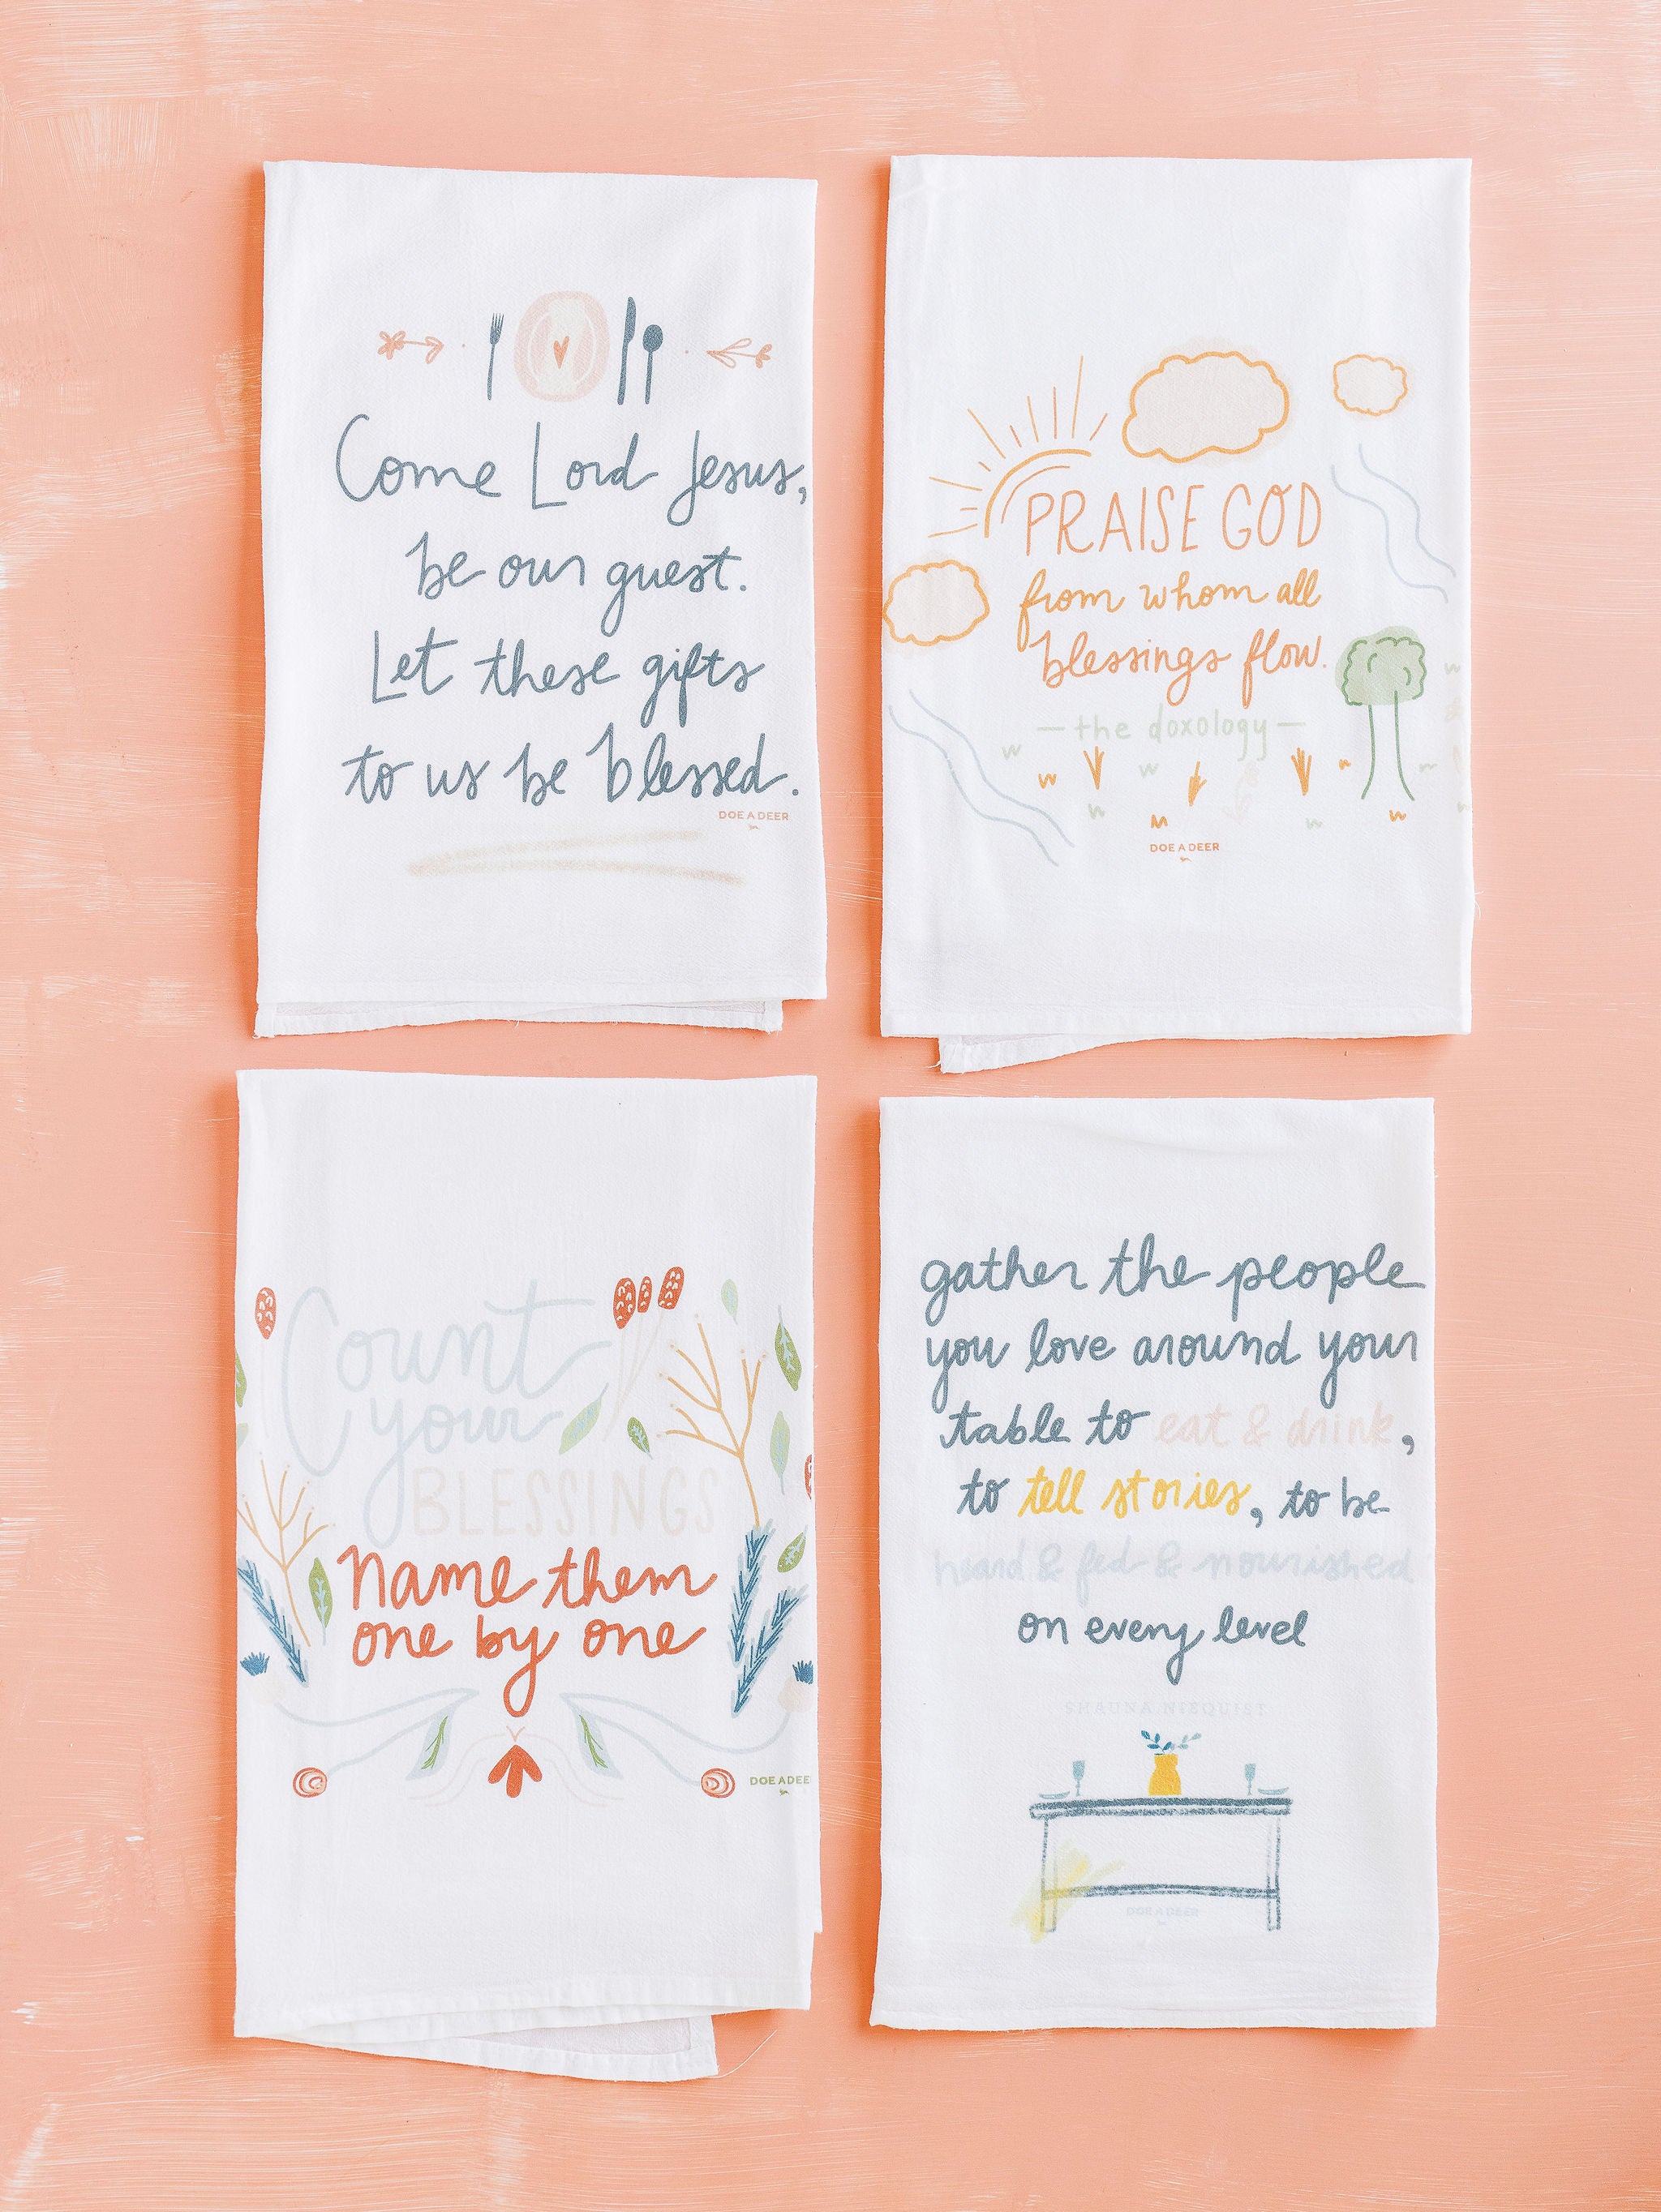 Come Lord Jesus,
be our guest.
Let these gifts
to us be blessed.
DOE A DEER
PRAISE GOD
from whom all
blessings flow.
— the doxology —
DOE A DEER
Count
your
BLESSINGS
Name them
one by one
DOE A DEE
gather the people
you love around your
table to eat & drink,
to tell stories, to be
heard & fed & nourished
on every level
SHAUNA NIEQUIST
DOE A DEER